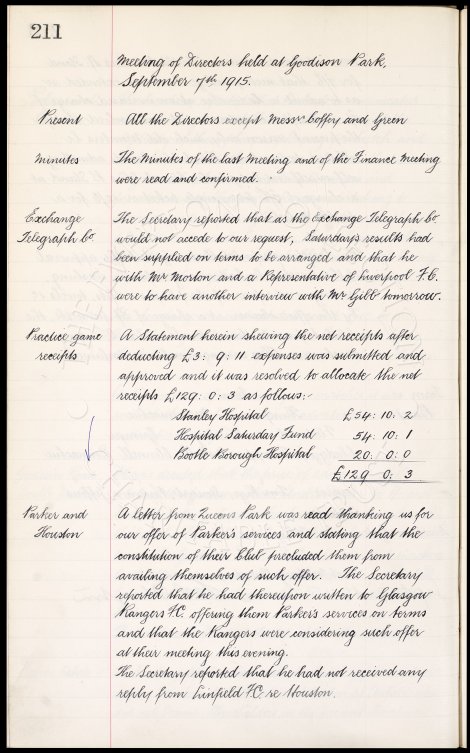 211
Meeting of Directors held at Goodison Park,
September 7th 1915.
Present All the Directors except Messrs Coffey and Green
Minutes The Minutes of the last Meeting and of the Finance Meeting
were read and confirmed.
Exchange The Secretary reported that as the Exchange Telegraph Co.
Telegraph Co. would not accede to our request, Saturday's results had
been supplied on terms to be arranged and that he
with Mr Morton and a Representative of Liverpool F.C.
were to have another interview with Mr Gibb tomorrow.
Practice game A Statement herein shewing the net receipts after
receipts deducting £3 : 9 : 11 expenses was submitted and
approved and it was resolved to allocate the net
receipts £129 : 0 : 3 as follows:-
Stanley Hospital £54 : 10 : 2
Hospital Saturday Fund 54 : 10 : 1
Bootle Borough Hospital 20 : 0 : 0
£129 0 : 3
Parker and A letter from Queens Park was read thanking us for
Houston our offer of Parker's services and stating that the
constitution of their Club precluded them from
availing themselves of such offer. The Secretary
reported that he had thereupon written to Glasgow
Rangers F.C. offering them Parker's services on terms
and that the Rangers were considering such offer
at their meeting this evening.
The Secretary reported that he had not received any
reply from Linfield F.C. re Houston.